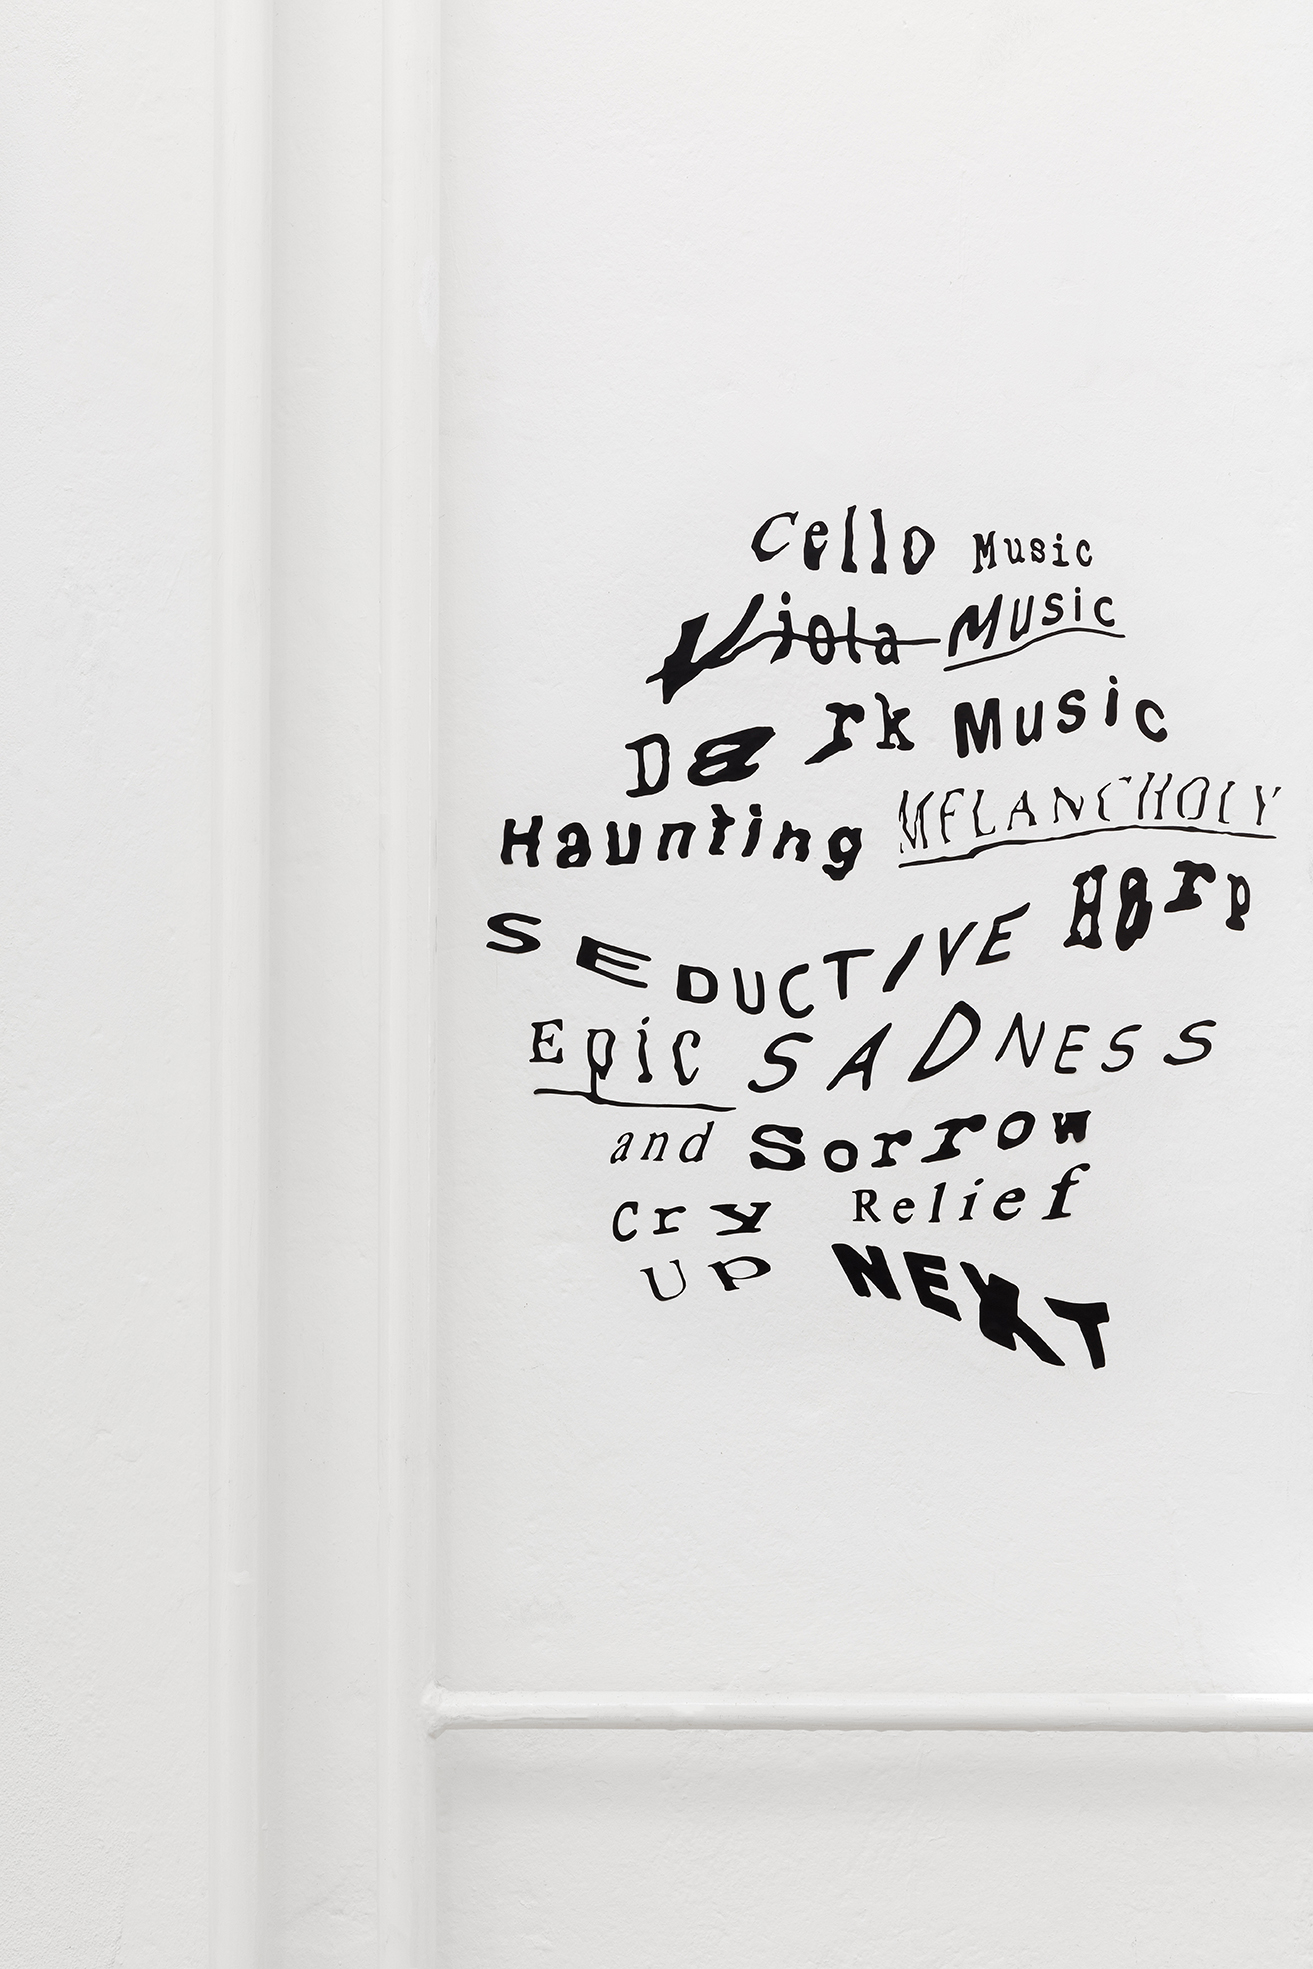 Cello Music
Viola Music
Dark Music
Haunting MELANCHOLY
SEDUCTIVE Harp
Epic SADNESS
and Sorrow
Cry Relief
Up NEXT